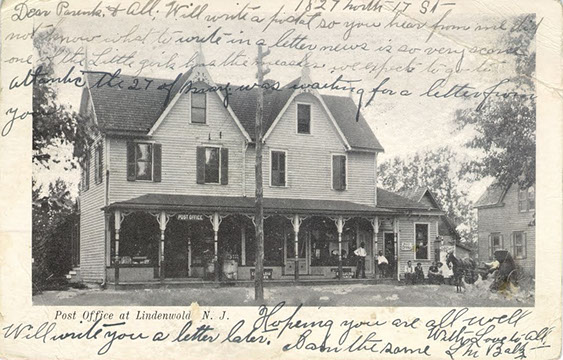 Dear Parents & All, Will write a postal so you hear from me did
1827 North 17 St-
not know what to write in a letter news is so very scarce
one of the Little girls has the measles we expect to go to
Atlantic the 27 of May was waiting for a letter from
you
POST OFFICE
Post Office at Lindenwold N. J.
Hoping you are all well
Will write you a letter later. I am the same
With Love to all,